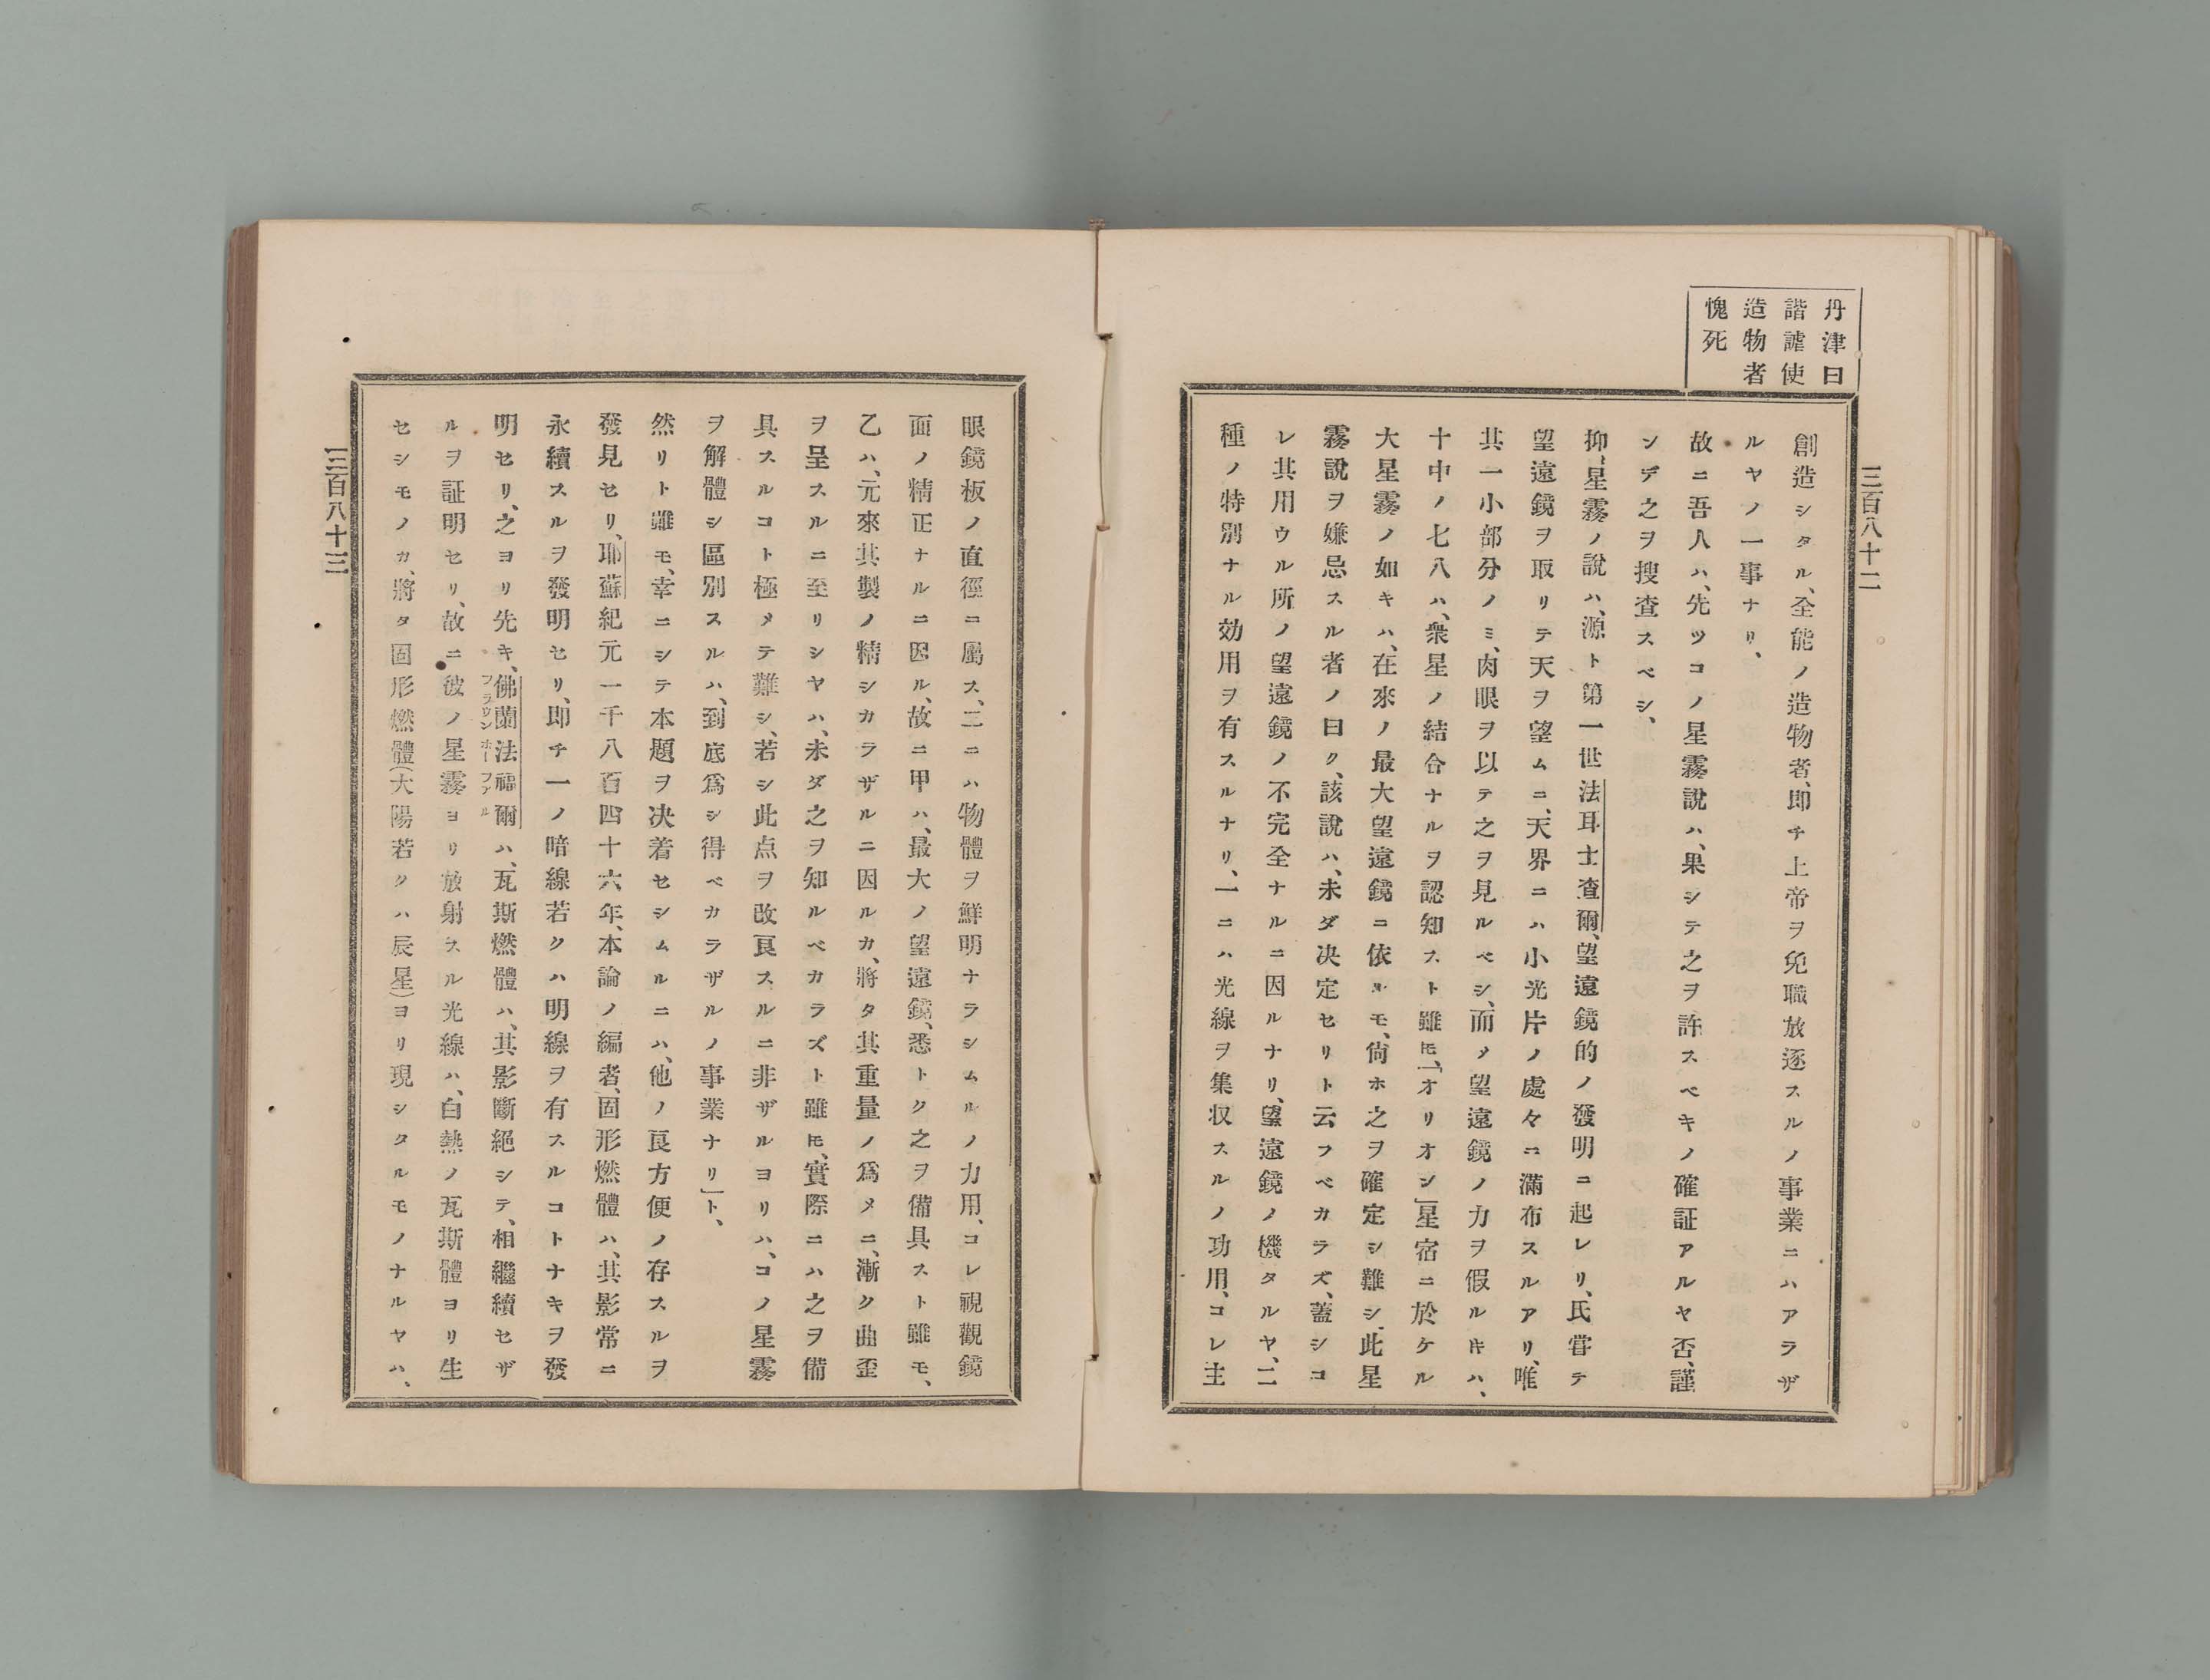 三百八十二
丹津曰
諧謔使
造物者
愧死
創造シタル、全能ノ造物者、即チ上帝ヲ免職放逐スルノ事業ニハアラザ
ルヤノ一事ナリ、
故ニ吾人ハ、先ツコノ星霧說ハ、果シテ之ヲ許スベキノ確証アルヤ否、謹
ンデ之ヲ搜査スベシ、
抑、星霧ノ說ハ、源ト第一世法耳士査爾、望遠鏡的ノ發明ニ起レリ、氏嘗テ
望遠鏡ヲ取リテ天ヲ望ムニ、天界ニハ小光片ノ處々ニ滿布スルアリ、唯
其一小部分ノミ、肉眼ヲ以テ之ヲ見ルベシ、而メ望遠鏡ノ力ヲ假ルキハ、
十中ノ七八ハ、衆星ノ結合ナルヲ認知スト雖𪜈、「オリオン」星宿ニ於ケル
大星霧ノ如キハ、在來ノ最大望遠鏡ニ依ルモ、尙ホ之ヲ確定シ難シ、此星
霧說ヲ嫌忌スル者ノ曰ク、該說ハ、未ダ决定セリト云フベカラズ、蓋シコ
レ其用ウル所ノ望遠鏡ノ不完全ナルニ因ルナリ、望遠鏡ノ機タルヤ、二
種ノ特別ナル効用ヲ有スルナリ、一ニハ光線ヲ集収スルノ功用、コレ主
眼鏡板ノ直徑ニ屬ス、二ニハ物體ヲ鮮明ナラシムルノ力用、コレ視觀鏡
面ノ精正ナルニ因ル、故ニ甲ハ、最大ノ望遠鏡、悉トク之ヲ備具スト雖モ、
乙ハ、元來其製ノ精シカラザルニ因ルカ、將タ其重量ノ爲メニ、漸ク曲歪
ヲ呈スルニ至リシヤハ、未ダ之ヲ知ルベカラズト雖𪜈、實際ニハ之ヲ備
具スルコト極メテ難シ、若シ此点ヲ改良スルニ非ザルヨリハ、コノ星霧
ヲ解體シ區別スルハ、到底爲シ得ベカラザルノ事業ナリ」ト、
然リト雖モ、幸ニシテ本題ヲ决着セシムルニハ、他ノ良方便ノ存スルヲ
發見セリ、耶蘇紀元一千八百四十六年、本論ノ編者、固形燃體ハ、其影常ニ
永續スルヲ發明セリ、即チ一ノ暗線若クハ明線ヲ有スルコトナキヲ發
明セリ、之ヨリ先キ、佛蘭法福爾ハ、瓦斯燃體ハ、其影斷絕シテ、相繼續セザ
フラウンホーファル
ルヲ証明セリ、故ニ彼ノ星霧ヨリ放射スル光線ハ、白熱ノ瓦斯體ヨリ生
セシモノカ、將タ固形燃體(大陽若クハ辰星)ヨリ現シタルモノナルヤハ、
三百八十三